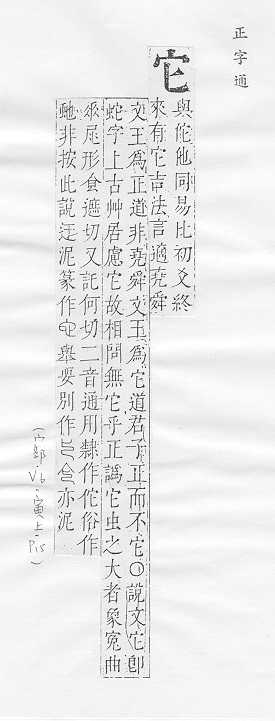 正字通
它
與佗他同易比初爻終
來有它吉法言適堯舜
文王爲正道非堯舜文王爲它道君子正而不它〇說文它卽
蛇字上古艸居慮它故相問無它乎正譌它虫之大者象冤曲
𠂹尾形食遮切又託何切二音通用隸作佗俗作
虵非按此說迂泥篆作舉要別作亦泥
(宀部.V6.寅上.P15)